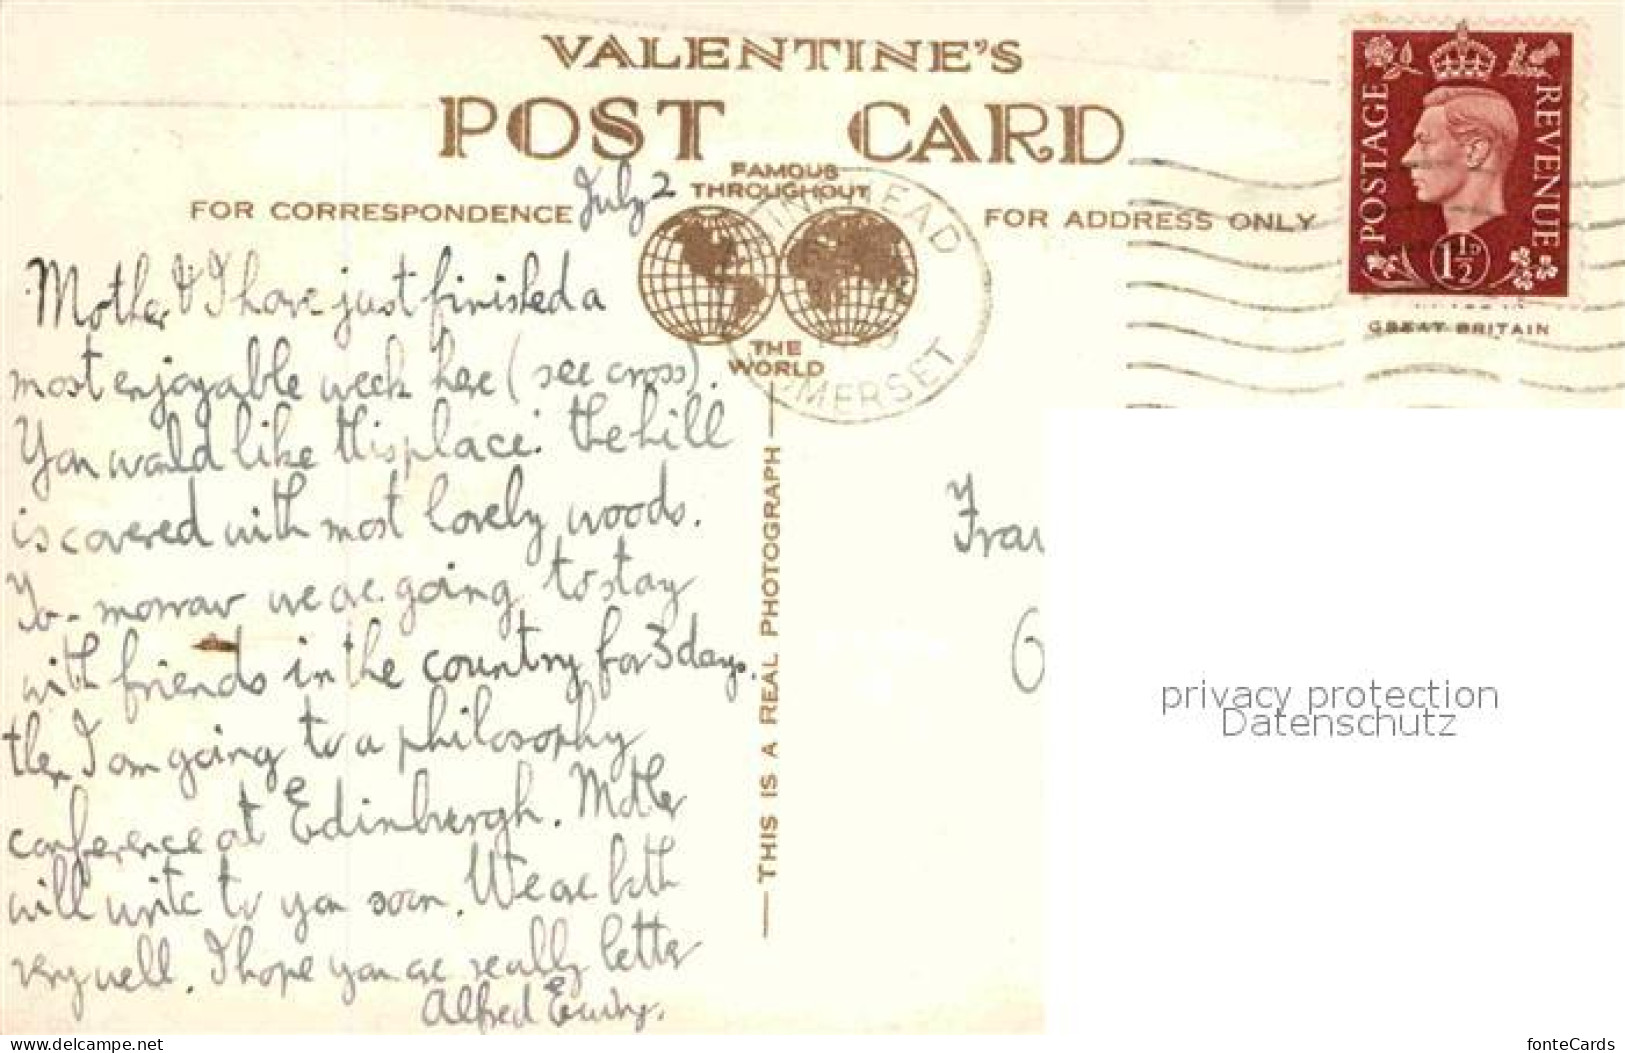 VALENTINE'S
POST CARD
FAMOUS
THROUGHOUT
FOR CORRESPONDENCE
FOR ADDRESS ONLY
THE
WORLD
July 2
Mother & I have just finished a
most enjoyable week here (see cross).
You would like this place. the hill
is covered with most lovely woods.
To-morrow we are going to stay
with friends in the country for 3 days.
then I am going to a philosophy
conference at Edinburgh. Mother
will write to you soon. We are both
very well. I hope you are really better
Alfred Ewing.
THIS IS A REAL PHOTOGRAPH
MINEHEAD
SOMERSET
POSTAGE
REVENUE
1½D
GREAT BRITAIN
Fran
6
privacy protection
Datenschutz
www.delcampe.net
fonteCards